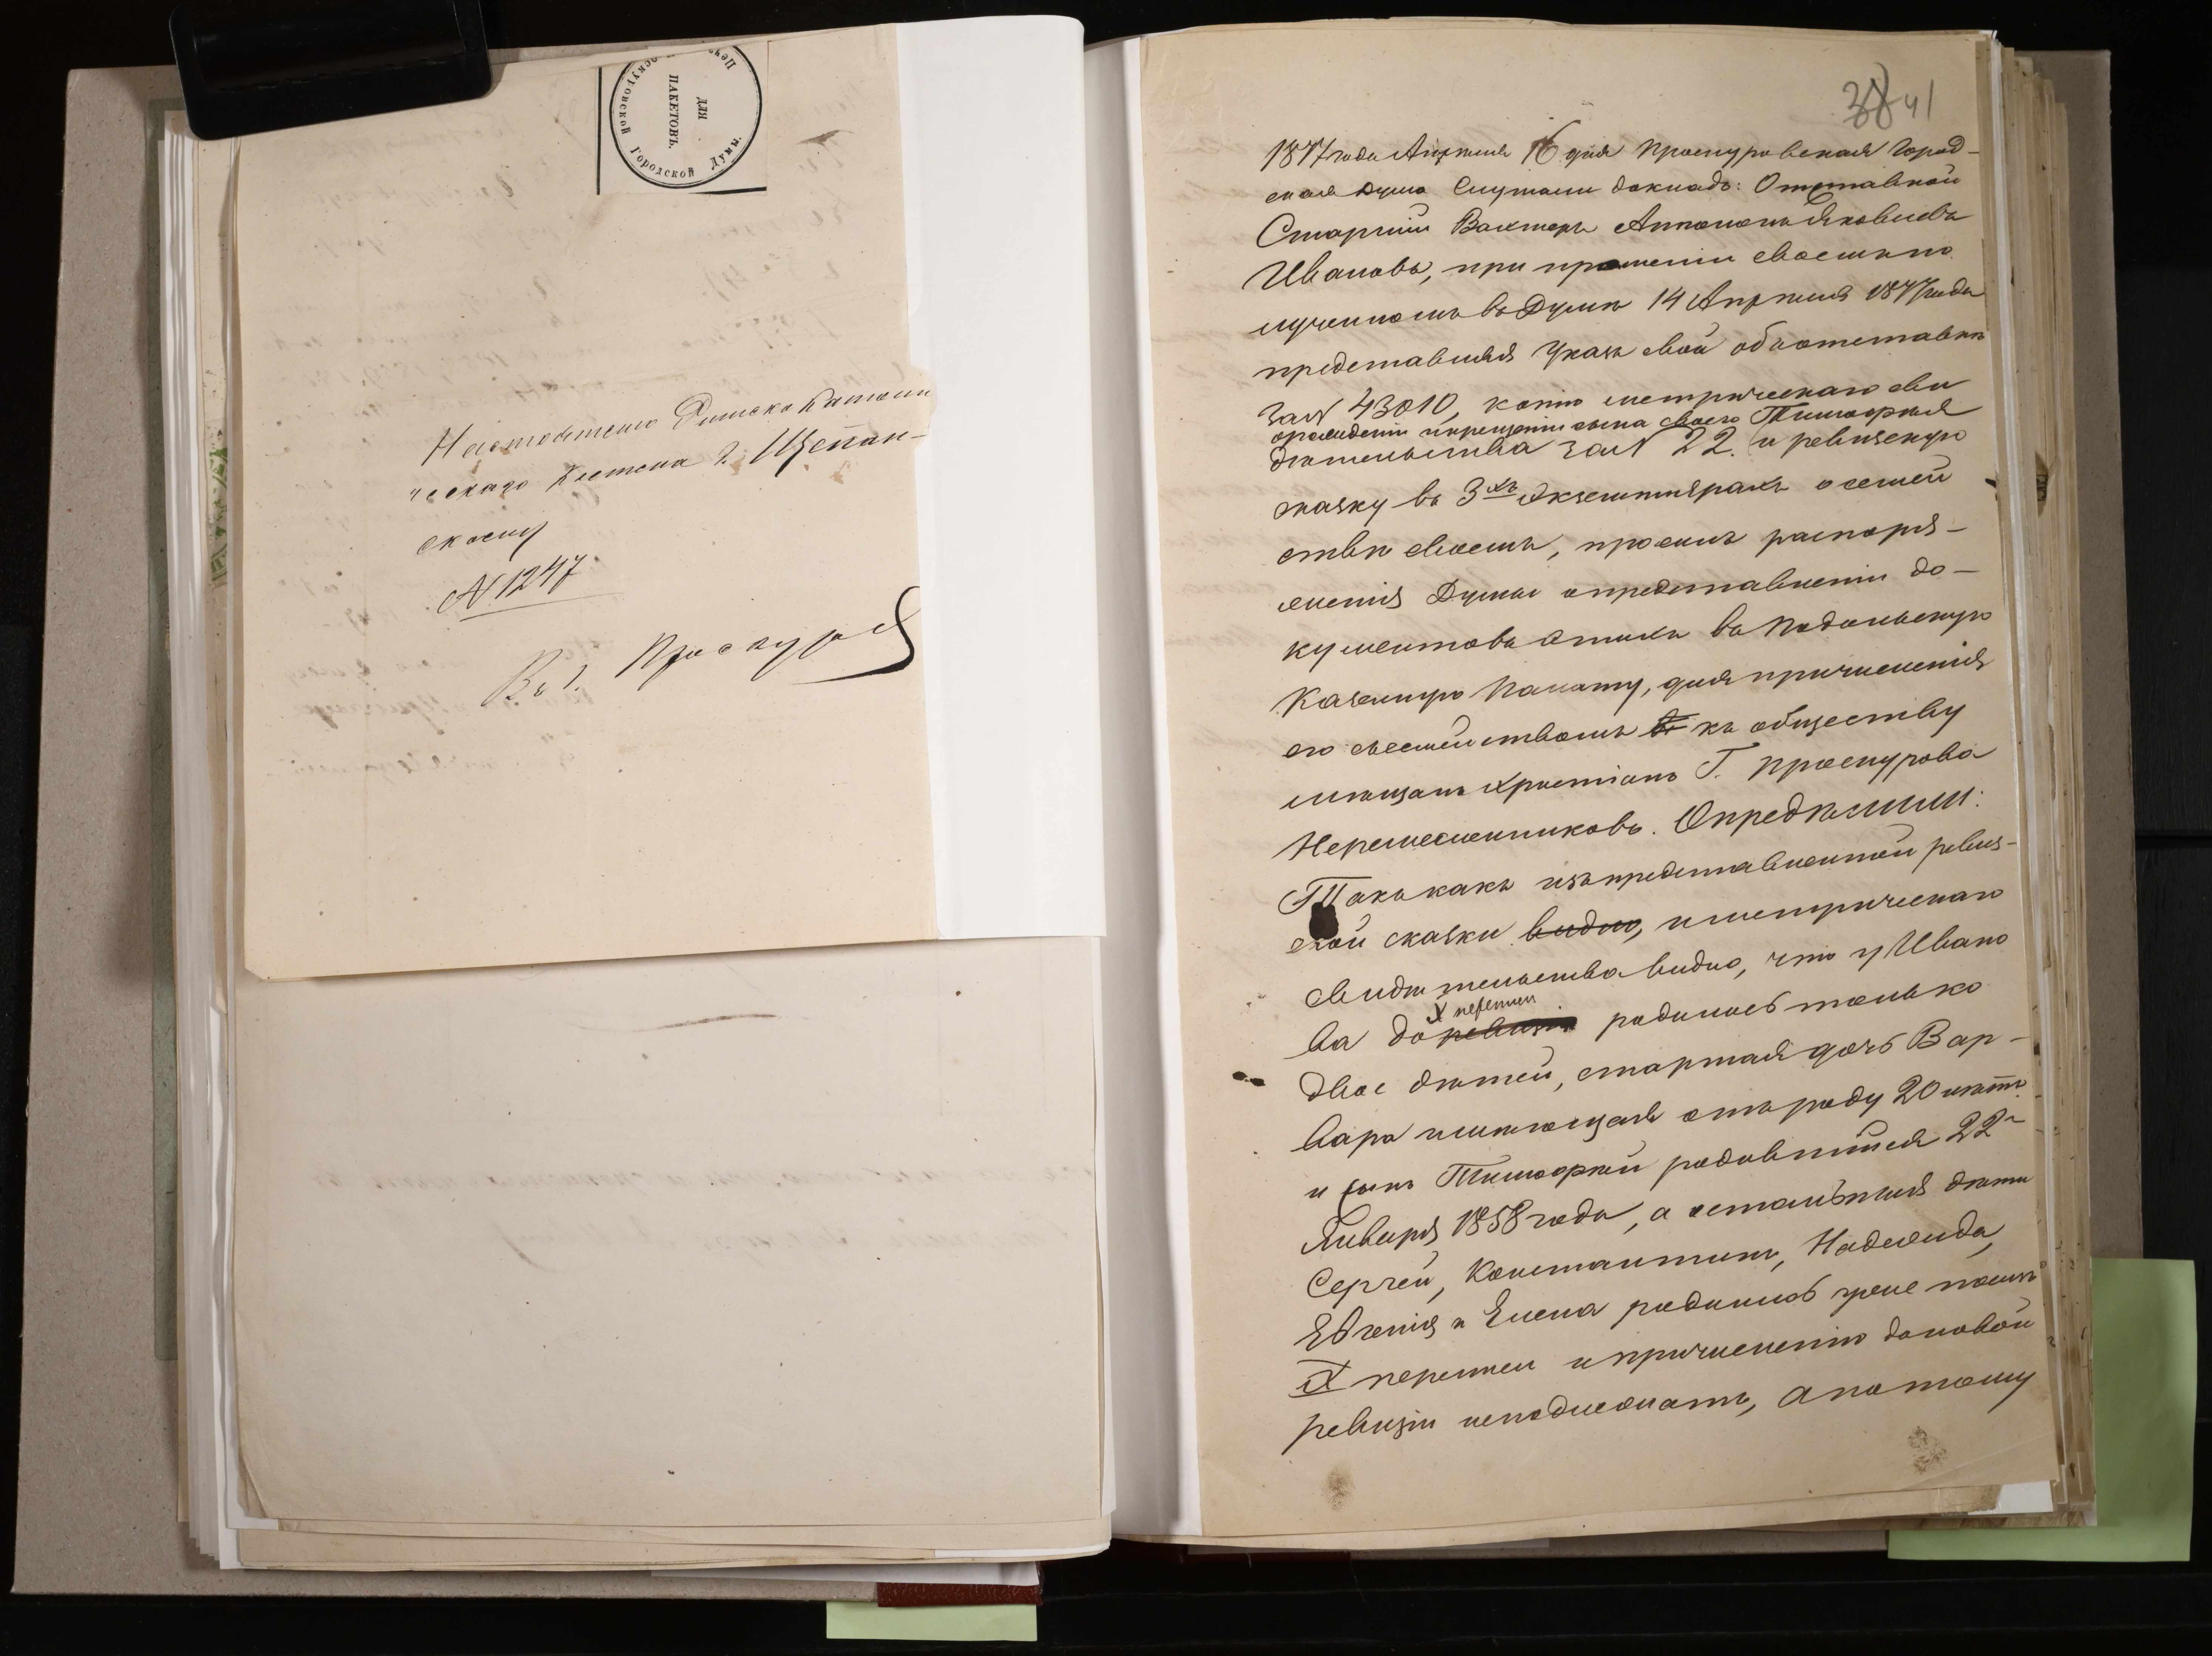 Печ
ДЛЯ
ПАКЕТОВЪ.
скуровской Городской Думы.
Настоятелю Римско Католи
ческаго Костела Г. Щепан-
скому
№ 1247
Въ г. Проскуровѣ
38 41
1877 года Апрѣля 16 дня Проскуровская Город-
ская Дума Слушали докладъ: Отставной
Старшій Вахтеръ Антонъ Яковлевъ
Ивановъ, при прошеніи своемъ по
лученномъ въ Думѣ 14 Апрѣля 1877 года
представляя Указъ свой объ отставкѣ
за № 43010, копію метрическаго сви
о рожденіи и крещеніи сына своего Тимофея
дѣтельства за № 22. и ревизскую
сказку въ 3хъ Экземплярахъ о семей
ствѣ своемъ, проситъ распоря-
женія Думы о представленіи до-
кументовъ этихъ въ Подольскую
Казенную Палату, для причисленія
его съ семействомъ въ къ обществу
мѣщанъ христіанъ Г. Проскурова
Неремесленниковъ. Опредѣлили:
Такъ какъ изъ представленной ревиз-
ской сказки видно, и метрическаго
свидѣтельства видно, что у Ивано
X перепи
ва до ревизіи родилось только
двое дѣтей, старшая дочь Вар-
вара имѣющая отъ роду 20 лѣтъ
и сынъ Тимофей родившійся 22-
Января 1858 года, а остальныя дѣти
Сергей, Константинъ, Надежда,
Евгенія и Елена родились уже послѣ
X переписи и причисленію до новой
ревизіи неподлежатъ, а потому